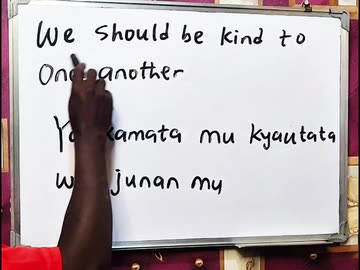 We should be kind to
One another
Ya kamata mu kyautata
wa junan my